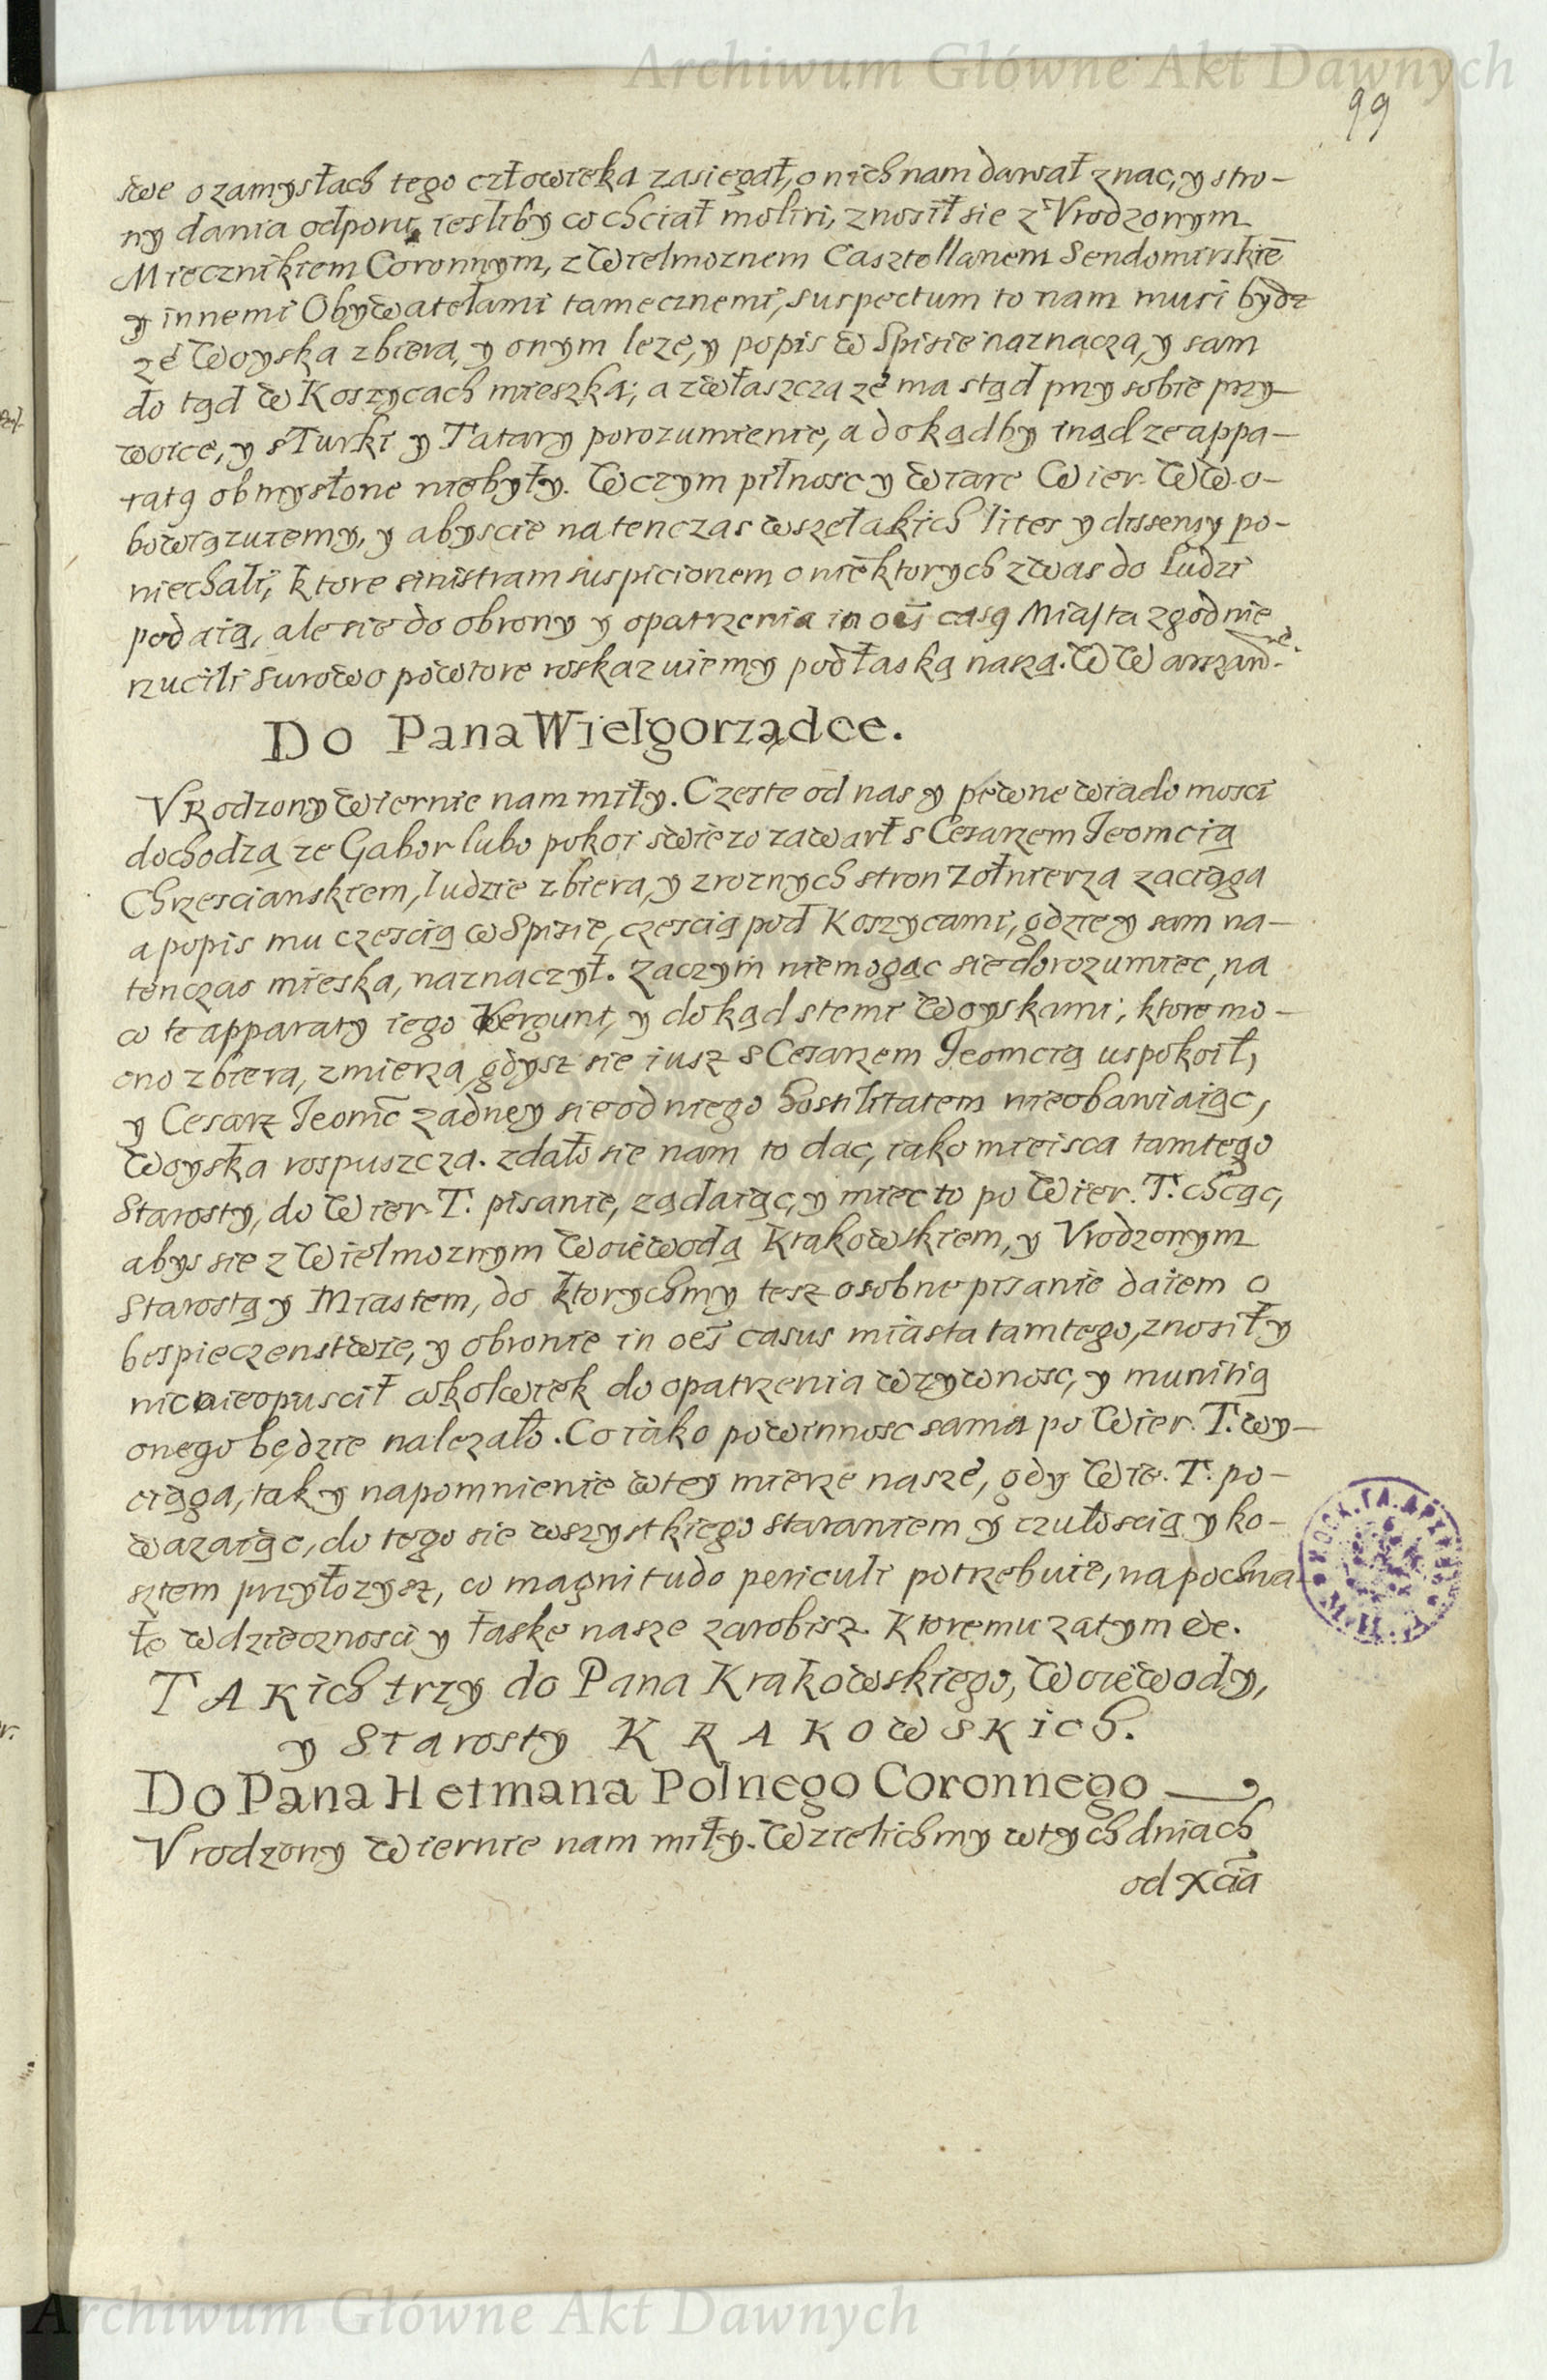 Archiwum Główne Akt Dawnych
99
swe o zamysłach tego człowieka zasięgał, o nich nam dawał znac, y stro-
ny dania odporu, iesliby co chciał moliri, znosił sie z Vrodzonym
Miecznikiem Coronnym, z Wielmoznem Casztellanem Sendomirskiē
y innemi Obywatelami tamecznemi, suspectum to nam musi bydz
ze Woyska zbiera, y onym leze, y popis w Spisie naznacza, y sam
do tąd w Koszycach mieszka; a zwłaszcza ze ma stąd przy sobie przy-
wodce, y s Turki y Tatary porozumienie, a dokądby inąd ze appa-
ratą obmyslone niebyły. W czym pilnosc y wiare Wier. WW. o-
bowiązuiemy, y abyscie na ten czas wszelakich lites y dissensy po-
niechali, ktore sinistram suspicionem o niektorych z was do ludzi
podaią, ale sie do obrony y opatrzenia in oēs casą Miasta zgodnie
rzucili surowo powtore roskazuiemy pod łaską naszą. W Warszaw.
Do Pana Wielgorządce.
VRodzony wiernie nam miły. Czeste od nas y pewne wiadomosci
dochodzą ze Gabor lubo pokoi swiezo zawarł s Cesarzem Jeomcią
Chrzescianskiem, ludzie zbiera, y z roznych stron Zołnierza zaciąga
a popis mu czescią w Spisie, czescią pod Koszycami, gdzie y sam na-
tenczas mieska, naznaczył. Zaczym niemogąc sie dorozumiec, na
co te apparaty iego vergunt, y dokąd s temi Woyskami, ktore mo-
cno zbiera, zmierza, gdysz sie iusz s Cesarzem Jeomcią uspokoił,
y Cesarz Jeomc̄ zadney sie od niego hostilitatem nieobawiaiąc,
Woyska rospuszcza. zdało sie nam to dac, iako mieisca tamtego
Starosty, do Wier. T. pisanie, ządaiąc, y miec to po Wier. T. chcąc,
abys sie z Wielmoznym Woiewodą Krakowskiem, y Vrodzonym
Starostą y Miastem, do ktorychmy tesz osobne pisanie daiem o
bespieczenstwie, y obronie in oēs casus miasta tamtego, znosił y
nic nieopuscił cokolwiek do opatrzenia w zywnosc, y munitią
onego będzie nalezało. Co iako powinnosc sama po Wier. T. wy-
ciąga, tak y napomnienie w tey mierze nasze, gdy Wie. T. po-
wazaiąc, do tego sie wszystkiego staraniem y czułoscią y ko-
sztem przyłozysz, co magnitudo periculi potrzebuie, na pochwa-
łe wdziecznosci y łaske nasze zarobisz. Ktoremu zatym etc.
TAKich trzy do Pana Krakowskiego, Woiewody,
y Starosty KRAKOWSKICh.
Do Pana Hetmana Polnego Coronnego
Vrodzony Wiernie nam miły. Wzielichmy w tych dniach
od Xcīa
Archiwum Główne Akt Dawnych